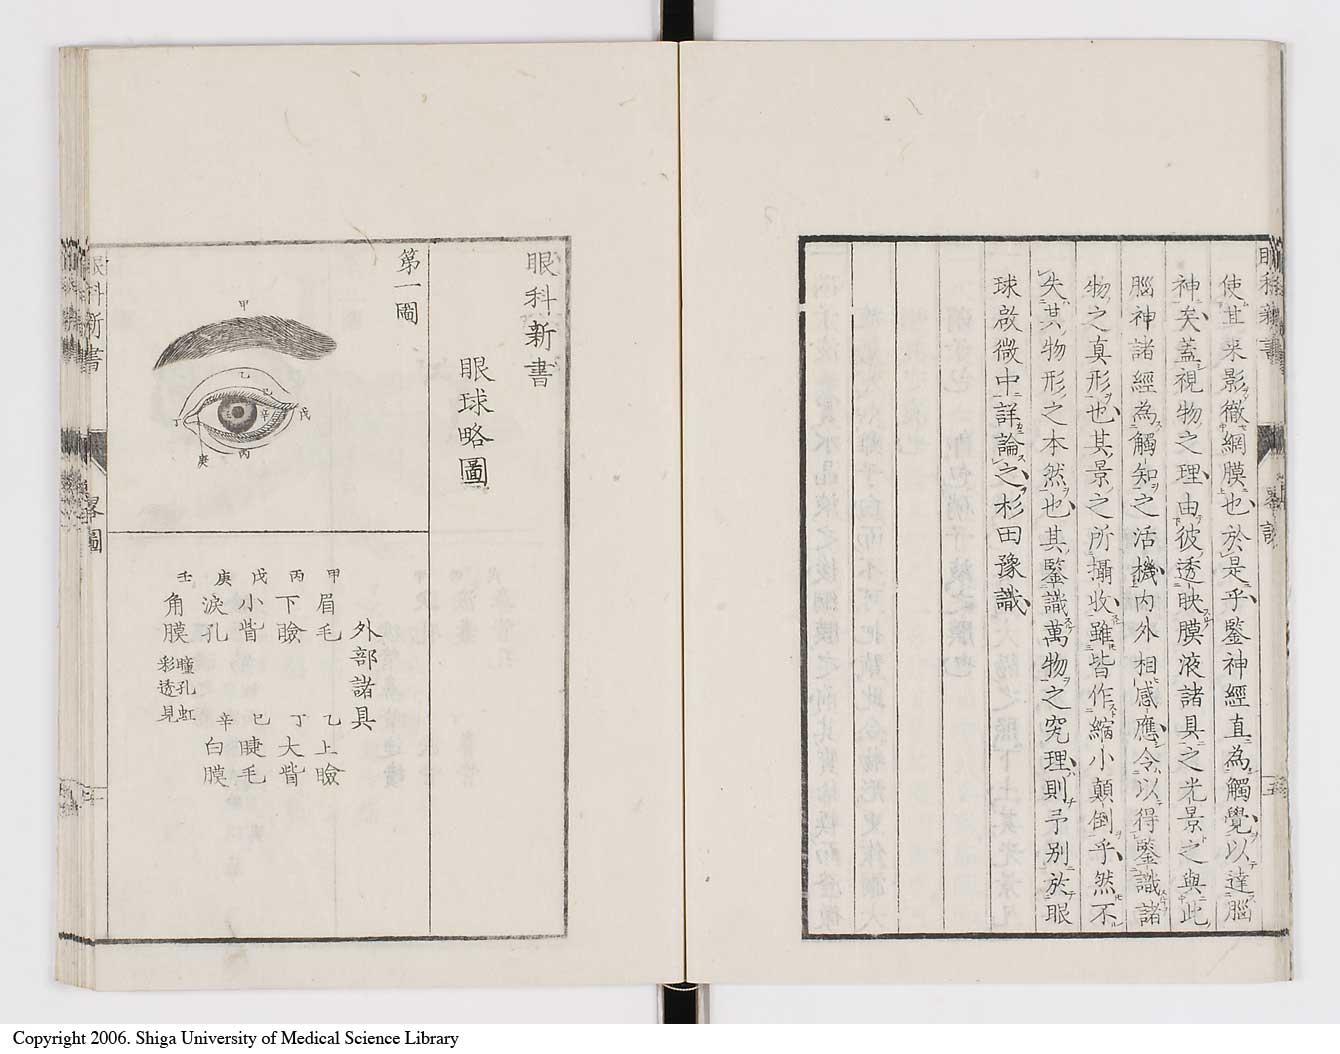 眼科新書
畧
使其來影徹網膜也於是乎鑒神經直為觸覺以達腦
神矣蓋視物之理由彼透映膜液諸具之光景之與此
腦神諸經為觸知之活機内外相感應令以得鑒識諸
物之真形也其景之所攝收雖皆作縮小顛倒乎然不
失其物形之本然也其鑒識萬物之究理則予別於眼
球啟微中詳論之杉田豫識
眼科新書
眼球略圖
第一圖
甲
乙
丙
丁
戊
己
庚
辛
壬
外部諸具
甲 眉毛
乙 上瞼
丙 下瞼
丁 大眥
戊 小眥
己 睫毛
庚 淚孔
辛 白膜
壬 角膜 瞳孔虹彩透見
眼科新書
畧圖
Copyright 2006. Shiga University of Medical Science Library